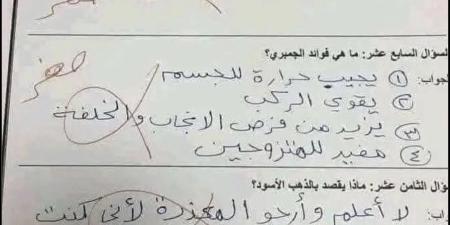 صفر
لسؤال السابع عشر: ما هي فوائد الجمبري؟
جواب: ① يجيب حرارة للجسم
② يقوي الركب
③ يزيد من فرص الانجاب والخلفة
④ مفيد للمتزوجين
ؤال الثامن عشر: ماذا يقصد بالذهب الأسود؟
اب: لا أعلم وأرجو المعذرة لأني كنت